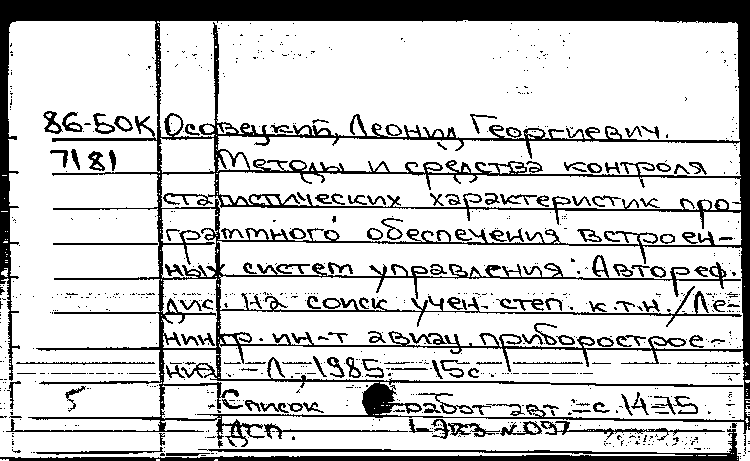 86-5ОК Осовецкий, Леонид Георгиевич.
7181 Методы и средства контроля
статистических характеристик про-
граммного обеспечения встроен-
ных систем управления: Автореф.
дис. на соиск. учен. степ. к.т.н. / Ле-
нингр. ин-т авиац. приборострое-
ния. - Л., 1985. - 15 с.
5 Список работ авт.: с. 14-15.
ДСП. 1-Экз №097